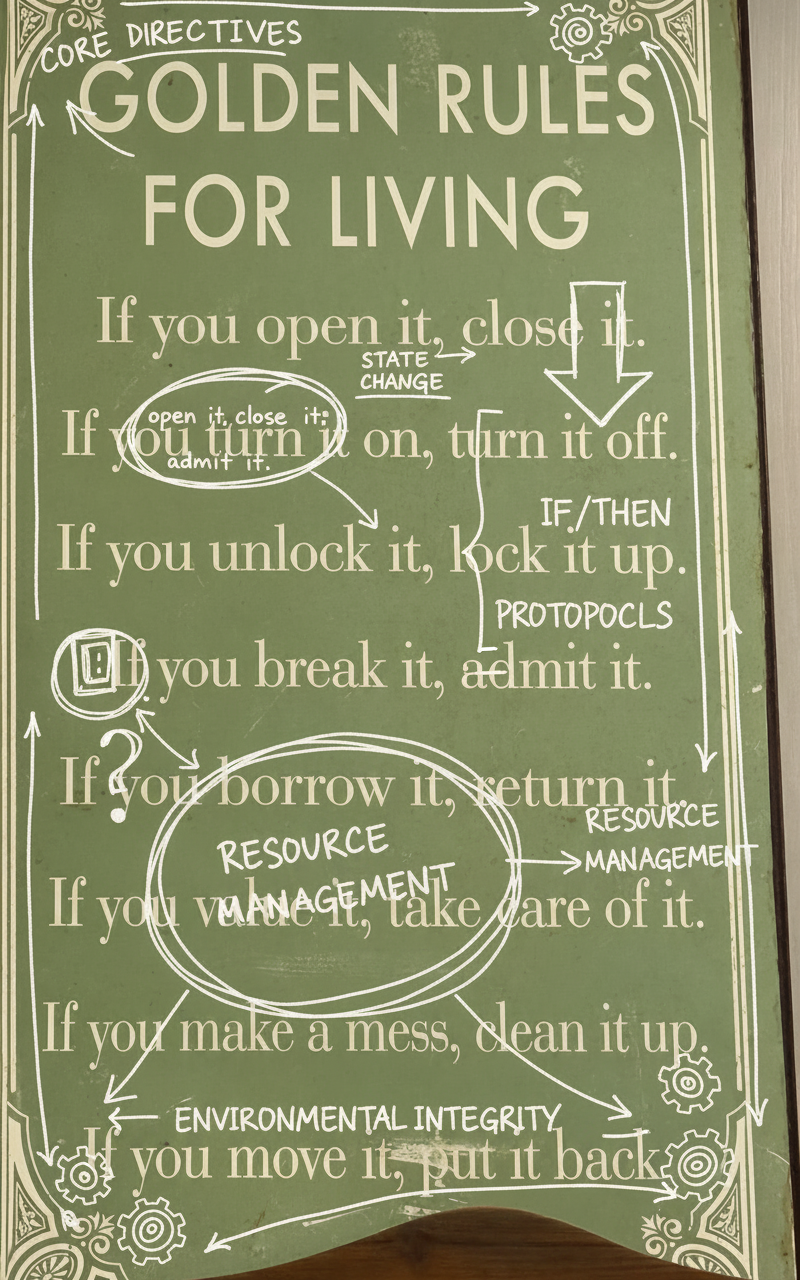 CORE DIRECTIVES
GOLDEN RULES
FOR LIVING
If you open it, close it.
STATE
CHANGE
open it, close it:
If you turn it on, turn it off.
admit it.
IF/THEN
If you unlock it, lock it up.
PROTOPOCLS
If you break it, admit it.
?
If you borrow it, return it.
RESOURCE
MANAGEMENT
RESOURCE
MANAGEMENT
If you value it, take care of it.
If you make a mess, clean it up.
ENVIRONMENTAL INTEGRITY
If you move it, put it back.